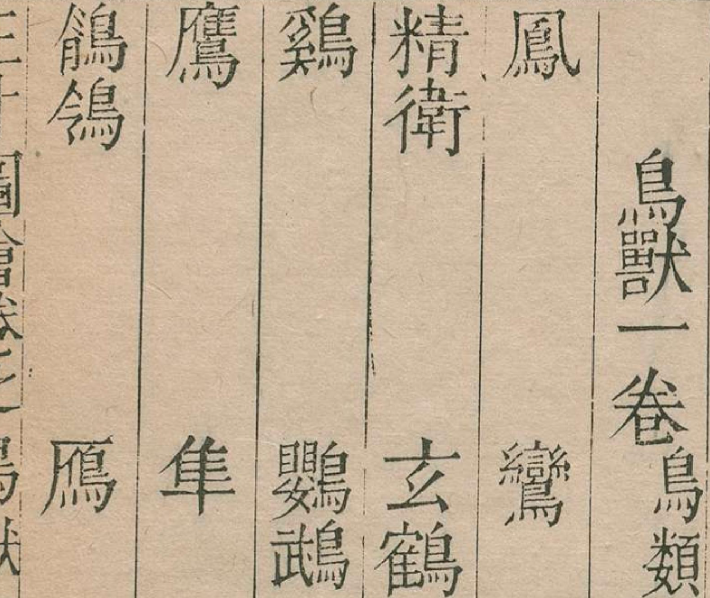 鳥獸一卷鳥類
鳳 鸞
精衛 玄鶴
鷄 鸚鵡
鷹 隼
鶺鴒 鴈
圖會卷之 鳥獸